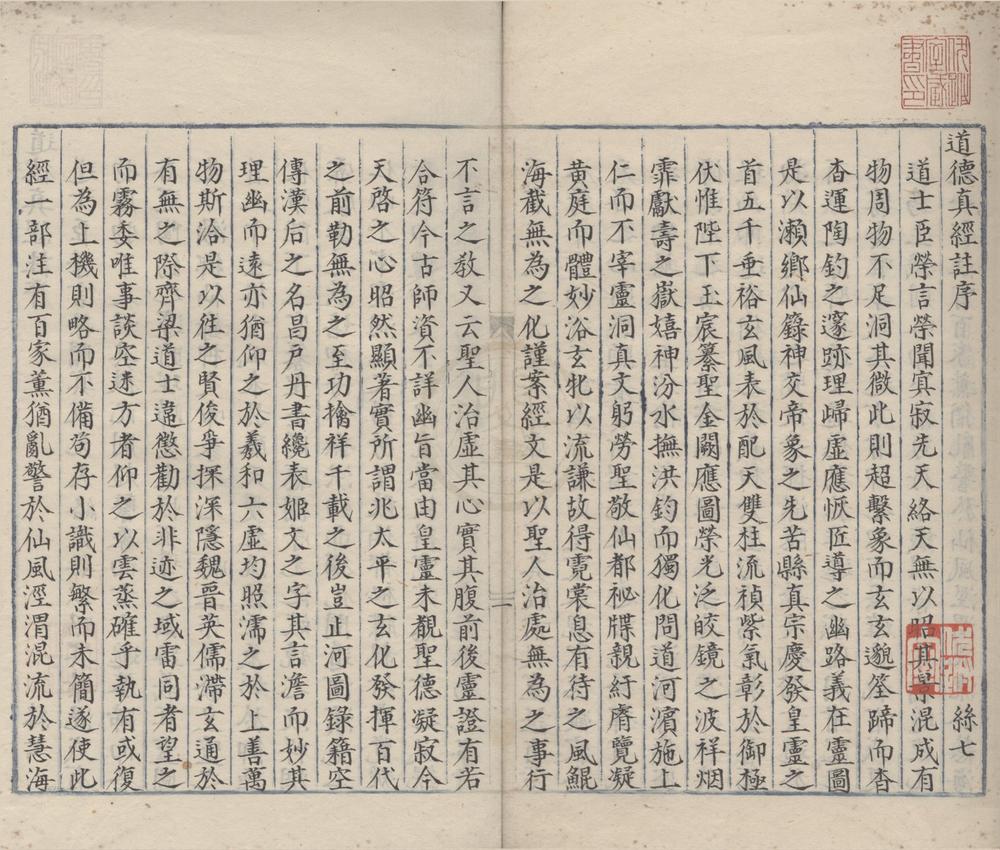 道德真經註序
絲七
道士臣榮言榮聞寘寂先天絡天無以昭其景混成有
物周物不足洞其微此則超繫象而玄玄邈筌蹄而杳
杳運陶鈞之邃跡理歸虛應恢匠導之幽路義在靈圖
是以瀨鄉仙錄神交帝象之先苦縣真宗慶發皇靈之
首五千垂裕玄風表於配天雙柱流禎紫氣彰於御極
伏惟陛下玉宸纂聖金闕應圖榮光泛皎鏡之波祥烟
霏獻壽之嶽嬉神汾水撫洪鈞而獨化問道河濱施上
仁而不宰靈洞真文躬勞聖敬仙都祕牒親紆睿覽凝
黃庭而體妙浴玄牝以流謙故得霓裳息有待之風鯤
海截無為之化謹案經文是以聖人治處無為之事行
不言之教又云聖人治虛其心實其腹前後靈證有若
合符今古師資不詳幽旨當由皇靈未覩聖德凝寂今
天啓之心昭然顯著實所謂兆太平之玄化發揮百代
之前勒無為之至功擒祥千載之後豈止河圖錄籍空
傳漢后之名昌戶丹書纔表姬文之字其言澹而妙其
理幽而遠亦猶仰之於羲和六虛均照濡之於上善萬
物斯洽是以往之賢俊爭探深隱魏晉英儒滯玄通於
有無之際齊梁道士違懲勸於非迹之域雷同者望之
而霧委唯事談空迷方者仰之以雲蒸確乎執有或復
但為上機則略而不備苟存小識則繁而未簡遂使此
經一部注有百家薰猶亂警於仙風涇渭混流於慧海
一